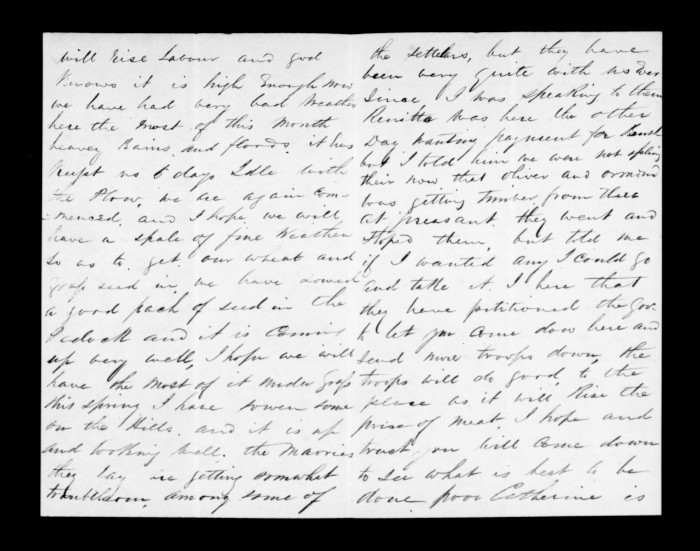 will rise Labour and god
knows it is high Enough now
we have had very bad Weather
here the most of this Month
heavey Rains and floods. it has
kept us 6 days Idle with
the Plow, we are again Com-
-menced, and I hope we will
have a spale of fine Weather
so as to get our wheat and
grass seed in, we have sowed
a good pach of seed in the
Padock and it is Coming
up very well, I hope we will
have the most of it under Grass
this spring I have sowen some
on the Hills. and it is up
and looking well. the Maories
they say are getting somwhat
troublesom, among some of
the settlers, but they have
been very quite with us Ever
Since I was speaking to them
Renitta was here the other
Day Wanting payment for
but I told him we were not
their now that oliver and
was getting timber from thare
at preasant they went and
stoped them, but told me
if I wanted any I could go
and take it. I here that
they have petitioned the Gov.
to let you Come down here and
send more troops down, the
troops will do good to the
place as it will Rise the
prise of meat. I hope and
trust you will Come down
to see what is best to be
done poor Catherine is